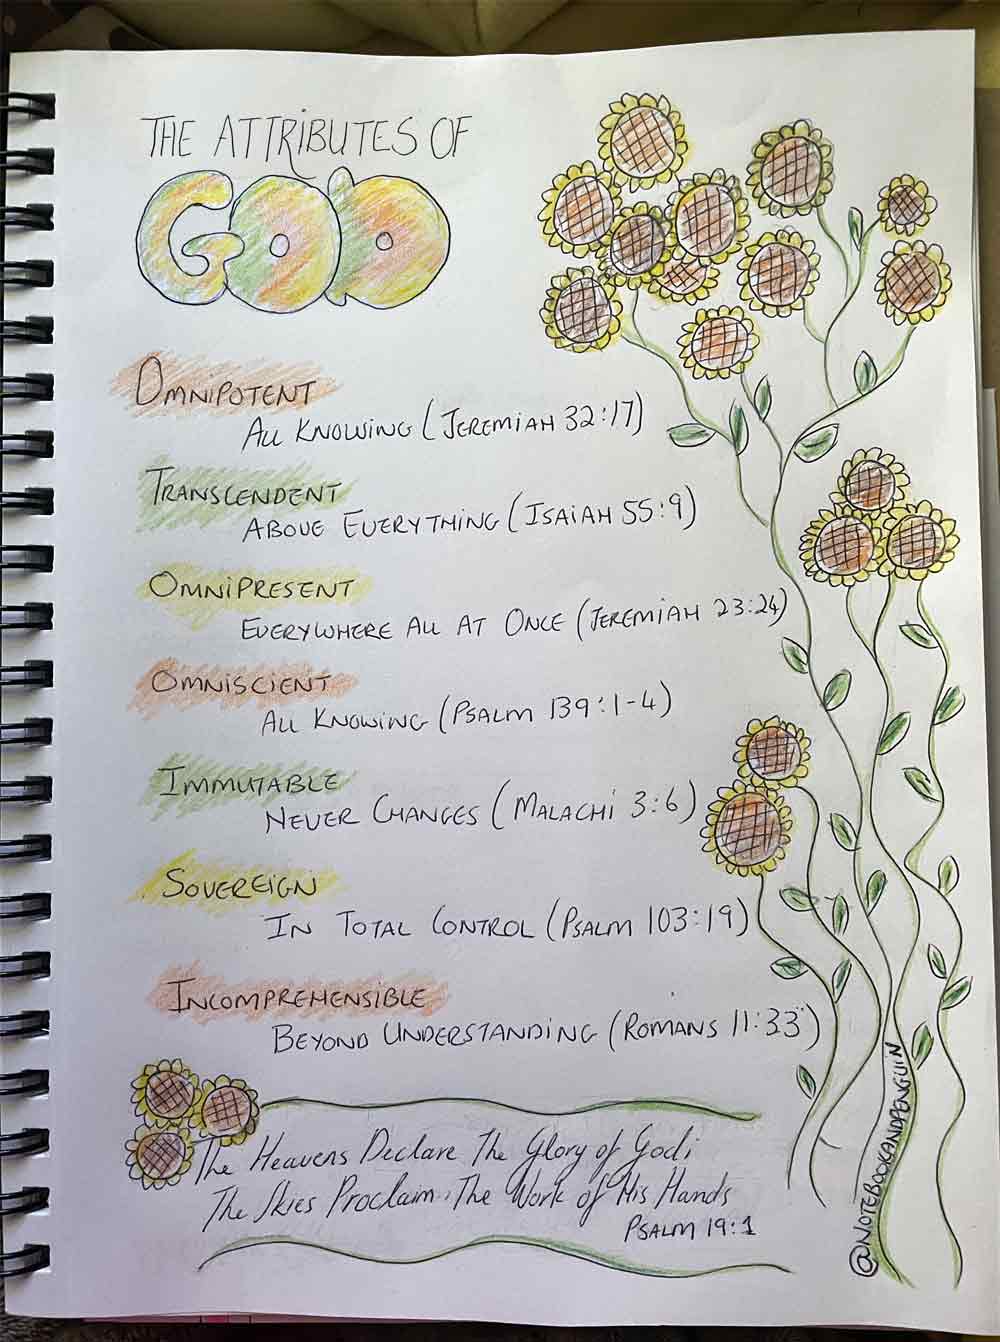 THE ATTRIBUTES OF
GOD
OMNIPOTENT
ALL KNOWING (JEREMIAH 32:17)
TRANSCENDENT
ABOVE EVERYTHING (ISAIAH 55:9)
OMNIPRESENT
EVERYWHERE ALL AT ONCE (JEREMIAH 23:24)
OMNISCIENT
ALL KNOWING (PSALM 139:1-4)
IMMUTABLE
NEVER CHANGES (MALACHI 3:6)
SOVEREIGN
IN TOTAL CONTROL (PSALM 103:19)
INCOMPREHENSIBLE
BEYOND UNDERSTANDING (ROMANS 11:33)
The Heavens Declare The Glory of God;
The Skies Proclaim The Work of His Hands
PSALM 19:1
@NOTEBOOKANDPENGUIN